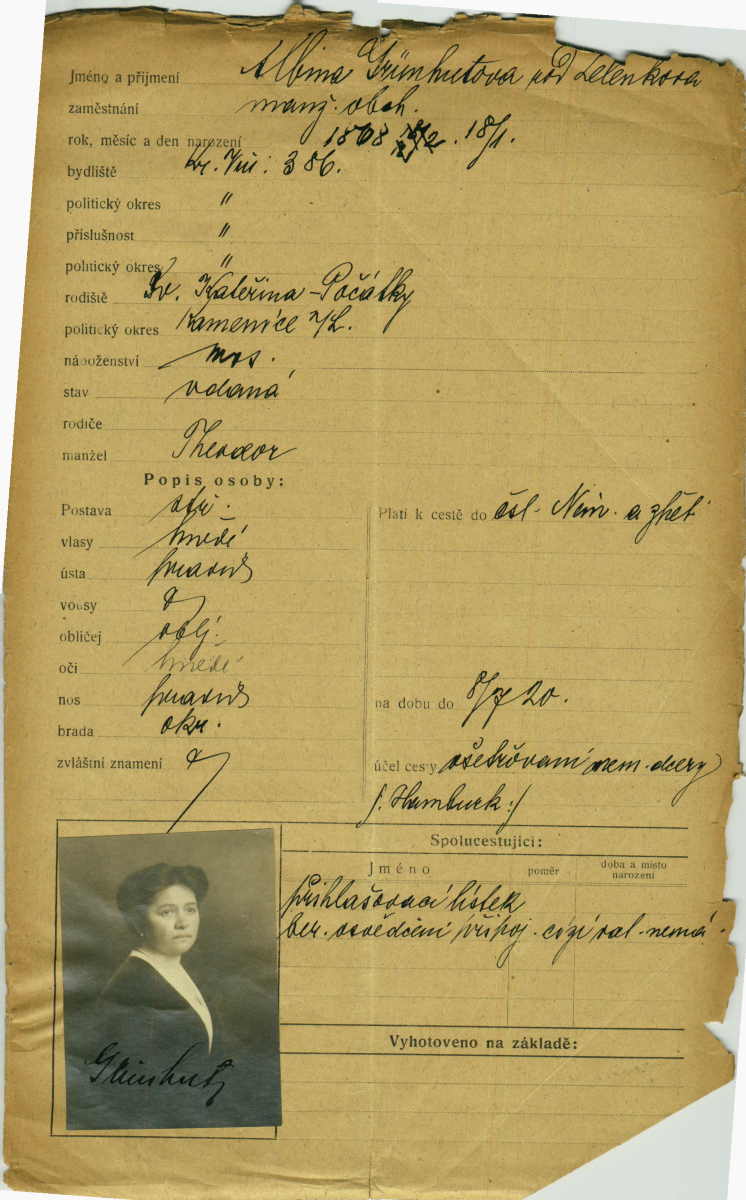 Jméno a přijmení Albina Grünhutova rod Zelenkova
zaměstnání manž. obch.
rok, měsíc a den narození 1868 18/1.
bydliště Kr. Vin: 386.
politický okres "
příslušnost "
politický okres "
rodiště Sv. Kateřina - Počátky
politický okres Kamenice n/L.
náboženství mos.
stav vdaná
rodiče
manžel Theodor
Popis osoby:
Postava stř.
vlasy hnědé
ústa pravid
vousy
obličej oblj.
oči hnědé
nos pravid
brada okr.
zvláštní znamení
Platí k cestě do čsl. Něm. a zpět
na dobu do 8/7 20.
účel cesty ošetřovaní nem. dcery
/: Hamburk :/
Spolucestující:
Jméno poměr doba a místo narození
přihlašovací lístek
ber. osvědčení připoj. cizí val. nemá.
Vyhotoveno na základě:
Grünhut